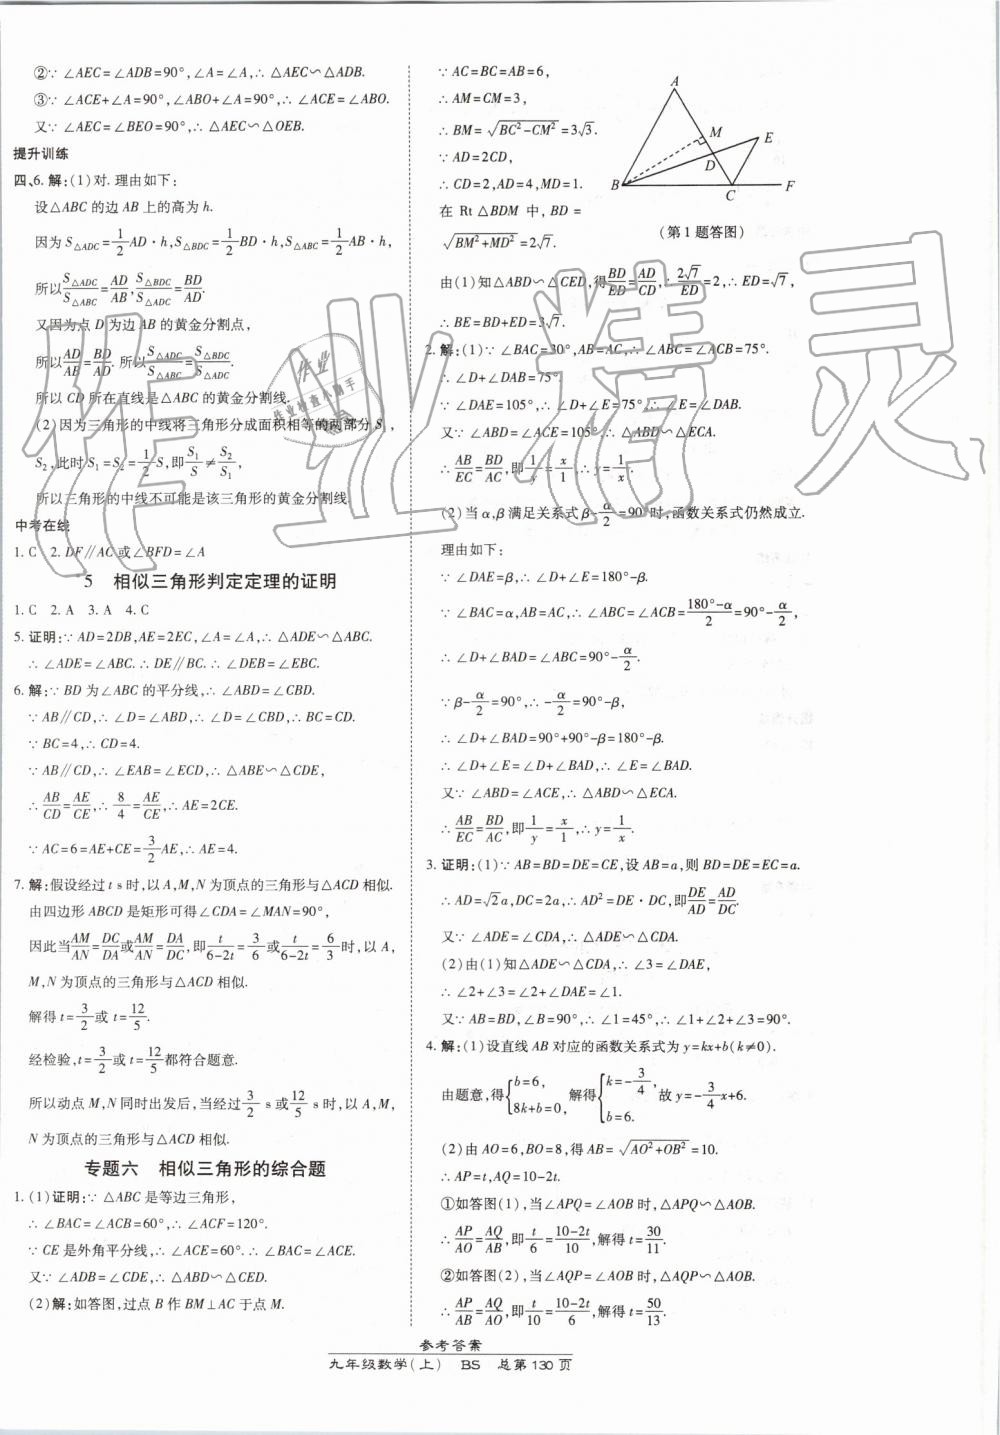 ②∵∠AEC=∠ADB=90°,∠A=∠A,∴△AEC∽△ADB.
③∵∠ACE+∠A=90°,∠ABO+∠A=90°,∴∠ACE=∠ABO.
又∵∠AEC=∠BEO=90°,∴△AEC∽△OEB.
提升训练
四、6. 解:(1)对. 理由如下:
设△ABC的边AB上的高为h.
因为S△ADC=1/2 AD·h,S△BDC=1/2 BD·h,S△ABC=1/2 AB·h,
所以S△ADC/S△ABC=AD/AB,S△BDC/S△ADC=BD/AD.
又因为点D为边AB的黄金分割点,
所以AD/AB=BD/AD. 所以S△ADC/S△ABC=S△BDC/S△ADC.
所以CD所在直线是△ABC的黄金分割线.
(2)因为三角形的中线将三角形分成面积相等的两部分S₁,
S₂,此时S₁=S₂=1/2 S,即S₁/S≠S₂/S₁,
所以三角形的中线不可能是该三角形的黄金分割线.
中考在线
1. C 2. DF∥AC或∠BFD=∠A
5 相似三角形判定定理的证明
1. C 2. A 3. A 4. C
5. 证明:∵AD=2DB,AE=2EC,∠A=∠A,∴△ADE∽△ABC.
∴∠ADE=∠ABC.∴DE∥BC.∴∠DEB=∠EBC.
6. 解:∵BD为∠ABC的平分线,∴∠ABD=∠CBD.
∵AB∥CD,∴∠D=∠ABD,∴∠D=∠CBD,∴BC=CD.
∵BC=4,∴CD=4.
∵AB∥CD,∴∠EAB=∠ECD,∴△ABE∽△CDE,
∴AB/CD=AE/CE,∴8/4=AE/CE,∴AE=2CE.
∵AC=6=AE+CE=3/2 AE,∴AE=4.
7. 解:假设经过t s时,以A,M,N为顶点的三角形与△ACD相似.
由四边形ABCD是矩形可得∠CDA=∠MAN=90°,
因此当AM/AN=DC/DA或AM/AN=DA/DC,即t/(6-2t)=3/6或t/(6-2t)=6/3时,以A,
M,N为顶点的三角形与△ACD相似.
解得t=3/2或t=12/5.
经检验,t=3/2或t=12/5都符合题意.
所以动点M,N同时出发后,当经过3/2 s或12/5 s时,以A,M,
N为顶点的三角形与△ACD相似.
专题六 相似三角形的综合题
1. (1)证明:∵△ABC是等边三角形,
∴∠BAC=∠ACB=60°,∴∠ACF=120°.
∵CE是外角平分线,∴∠ACE=60°.∴∠BAC=∠ACE.
又∵∠ADB=∠CDE,∴△ABD∽△CED.
(2)解:如答图,过点B作BM⊥AC于点M.
∵AC=BC=AB=6,
∴AM=CM=3,
∴BM=√(BC²-CM²)=3√3.
∵AD=2CD,
∴CD=2,AD=4,MD=1.
在Rt△BDM中,BD=
√(BM²+MD²)=2√7.
A
M
E
D
B
C
F
(第1题答图)
由(1)知△ABD∽△CED,得BD/ED=AD/CD,∴2√7/ED=2,∴ED=√7,
∴BE=BD+ED=3√7.
2. 解:(1)∵∠BAC=30°,AB=AC,∴∠ABC=∠ACB=75°.
∴∠D+∠DAB=75°.
∵∠DAE=105°,∴∠D+∠E=75°,∴∠E=∠DAB.
又∵∠ABD=∠ACE=105°,∴△ABD∽△ECA.
∴AB/EC=BD/AC,即1/y=x/1,∴y=1/x.
(2)当α,β满足关系式β-α/2=90°时,函数关系式仍然成立.
理由如下:
∵∠DAE=β,∴∠D+∠E=180°-β.
∵∠BAC=α,AB=AC,∴∠ABC=∠ACB=(180°-α)/2=90°-α/2,
∴∠D+∠BAD=∠ABC=90°-α/2.
∵β-α/2=90°,∴-α/2=90°-β,
∴∠D+∠BAD=90°+90°-β=180°-β.
∴∠D+∠E=∠D+∠BAD,∴∠E=∠BAD.
又∵∠ABD=∠ACE,∴△ABD∽△ECA.
∴AB/EC=BD/AC,即1/y=x/1,∴y=1/x.
3. 证明:(1)∵AB=BD=DE=CE,设AB=a,则BD=DE=EC=a.
∴AD=√2a,DC=2a,∴AD²=DE·DC,即DE/AD=AD/DC.
又∵∠ADE=∠CDA,∴△ADE∽△CDA.
(2)由(1)知△ADE∽△CDA,∴∠3=∠DAE,
∴∠2+∠3=∠2+∠DAE=∠1.
又∵AB=BD,∠B=90°,∴∠1=45°,∴∠1+∠2+∠3=90°.
4. 解:(1)设直线AB对应的函数关系式为y=kx+b(k≠0).
由题意,得{b=6, 8k+b=0, 解得{k=-3/4, b=6. 故y=-3/4 x+6.
(2)由AO=6,BO=8,得AB=√(AO²+OB²)=10.
∴AP=t,AQ=10-2t.
①如答图(1),当∠APQ=∠AOB时,△APQ∽△AOB.
∴AP/AO=AQ/AB,即t/6=(10-2t)/10,解得t=30/11.
②如答图(2),当∠AQP=∠AOB时,△AQP∽△AOB.
∴AP/AB=AQ/AO,即t/10=(10-2t)/6,解得t=50/13.
参考答案
九年级数学(上) BS 总第130页
作业精灵
作业
作业检查小助手